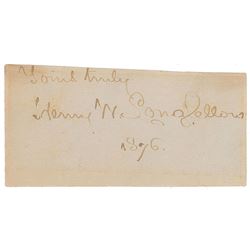 Yours truly
Henry W. Longfellow
1876.